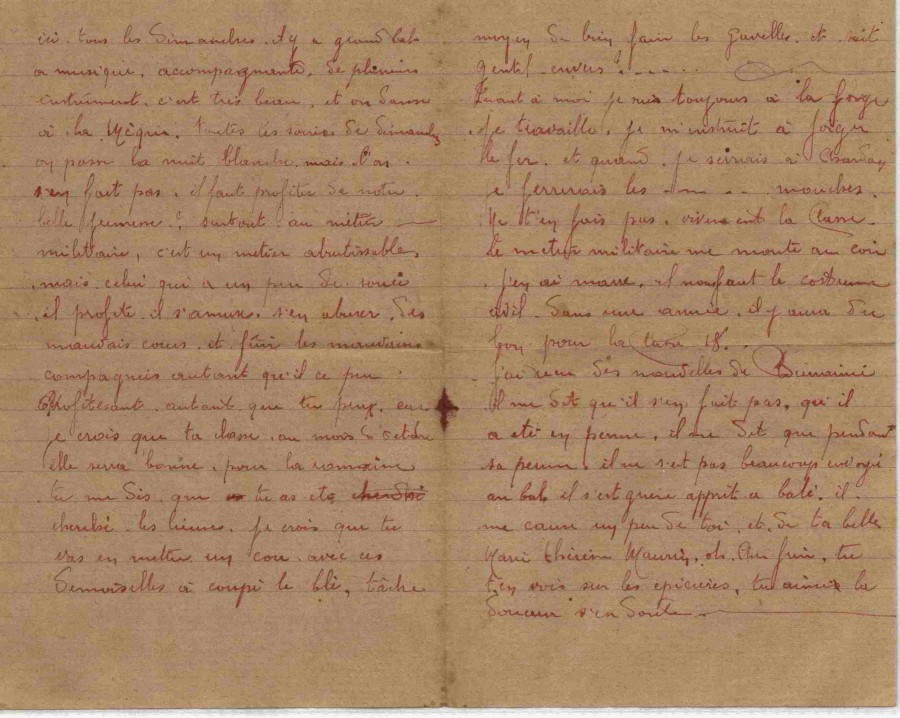 ici. tous les Dimanches. il y a grand bal
a musique. accompagmente, de plusieurs
instrument. c'est très beau, et on danse
à la Toutes les soirées de Dimanches
on passe la nuit blanche, mais l'on.
s'en fait pas. il faut profiter de notre
belle jeunesse? surtout au métier
militaire, c'est un metier abrutissable,
mais celui qui a un peu de souci
il profite il s'amuse, s'en abuser, des
mauvais cœurs. et fuir les mauvaises
compagnies autant qu'il ce peu
Profites ant. autant que tu peux. car
je crois que ta classe. au mois d'octobre
elle serra bonne. pour la romaine
tu me dis. que tu as ete
cherché les lieuses. Je crois que tu
vas en mettre un cou. avec ces
Demoiselles à coupé le blé, tâche
moyen de bien faire les gavelles. et soit
gentil envers !......
Quant à moi je suis toujours à la forge
Je travaille. Je m'instruit à forger
le fer. et quand. je seirais à
je ferrerais les mouches.
Ne t'en fais pas. vivement la Classe.
Le metier militaire me monte au coin
j'en ai marre. il nousfaut le costume
civil. Dans une année. il y aura du
bon pour la classe 18.
j'ai reçu des nouvelles de
Il me dit qu'il s'en fait pas, qu'il
a eté en perme, il me dit que pendant
sa perme, il ne s'et pas beaucoup
au bal, il s'est guère apprit a balé. il
me cause un peu de toi, et de ta belle
Marie thérèse oh. Ah fin, tu
t'en vois sur les epicières, tu aimes la
Douceur s'en doute.